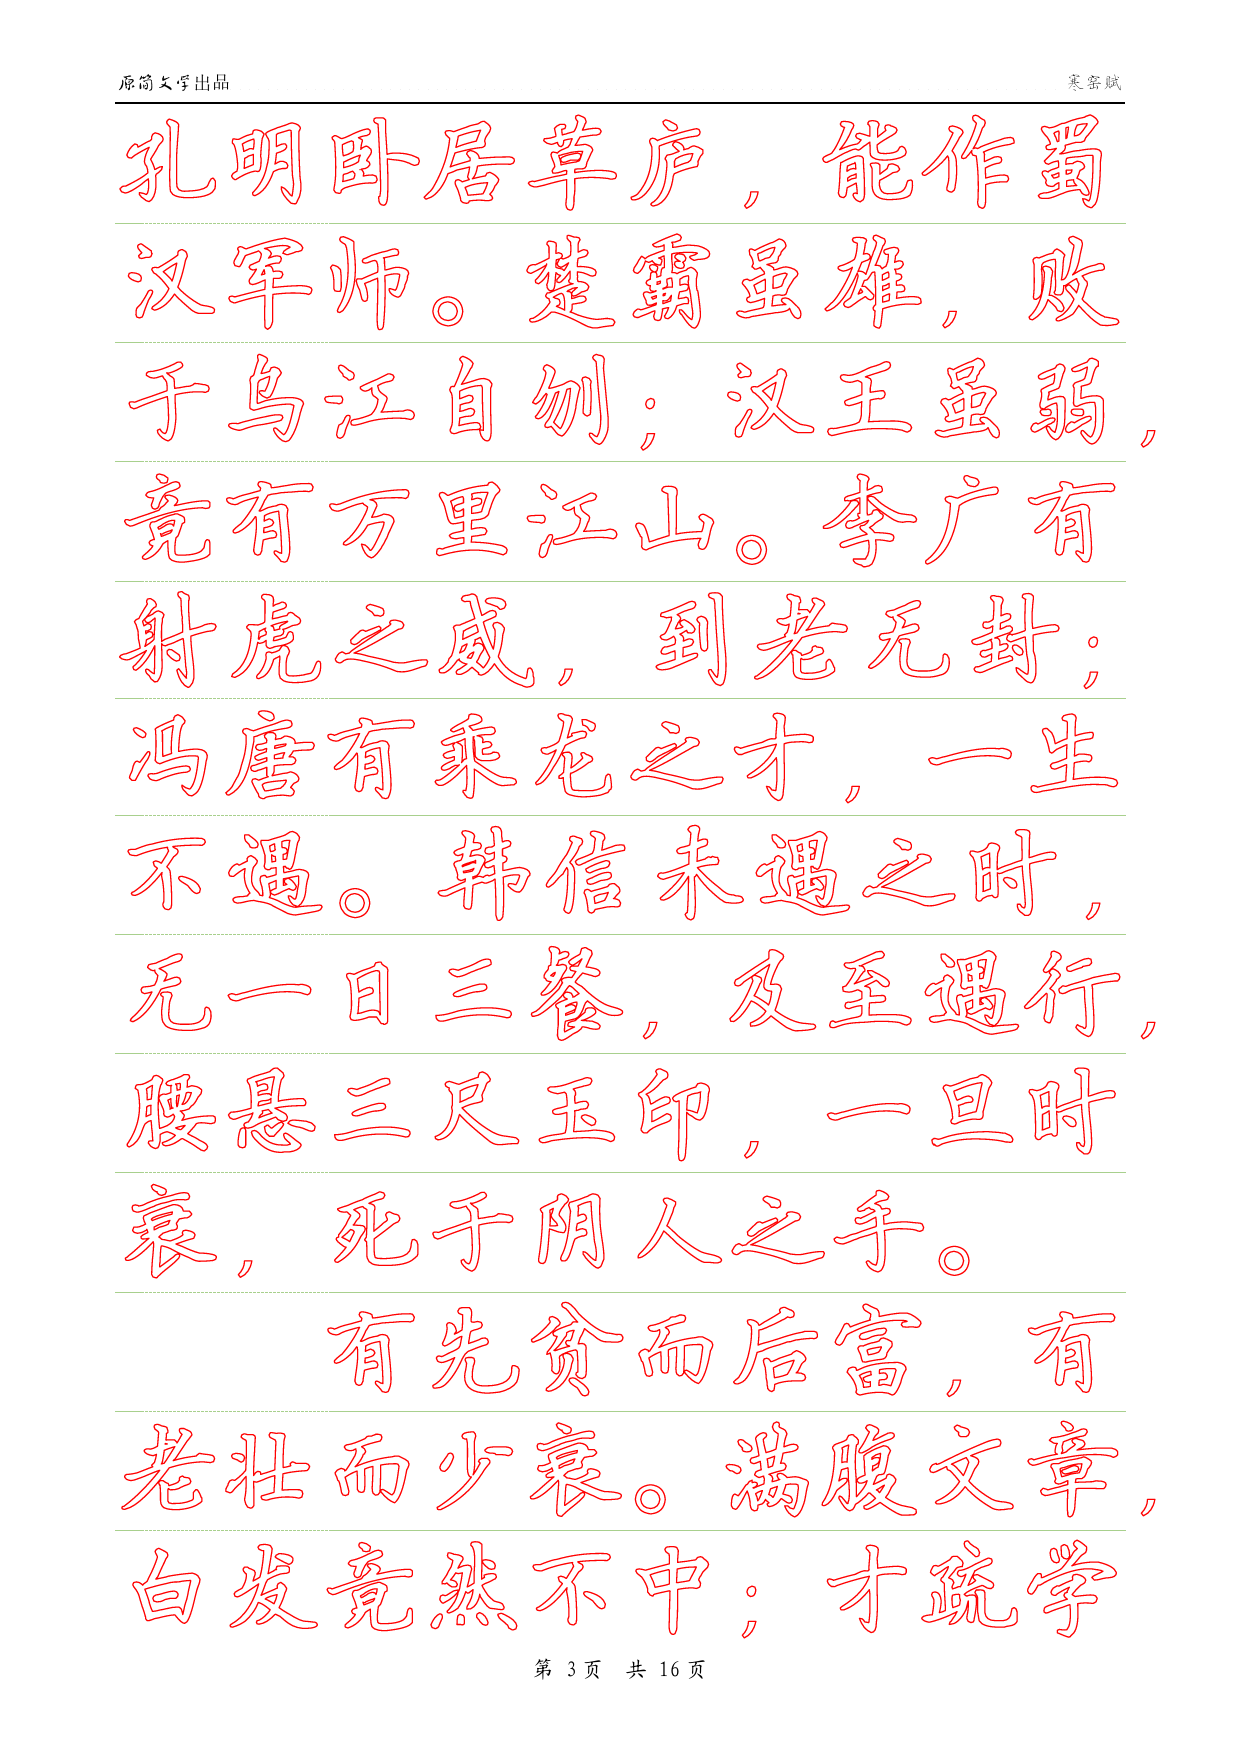 原简文学出品 寒窑赋
孔明卧居草庐，能作蜀
汉军师。楚霸虽雄，败
于乌江自刎；汉王虽弱，
竟有万里江山。李广有
射虎之威，到老无封；
冯唐有乘龙之才，一生
不遇。韩信未遇之时，
无一日三餐，及至遇行，
腰悬三尺玉印，一旦时
衰，死于阴人之手。
有先贫而后富，有
老壮而少衰。满腹文章，
白发竟然不中；才疏学
第 3 页 共 16 页